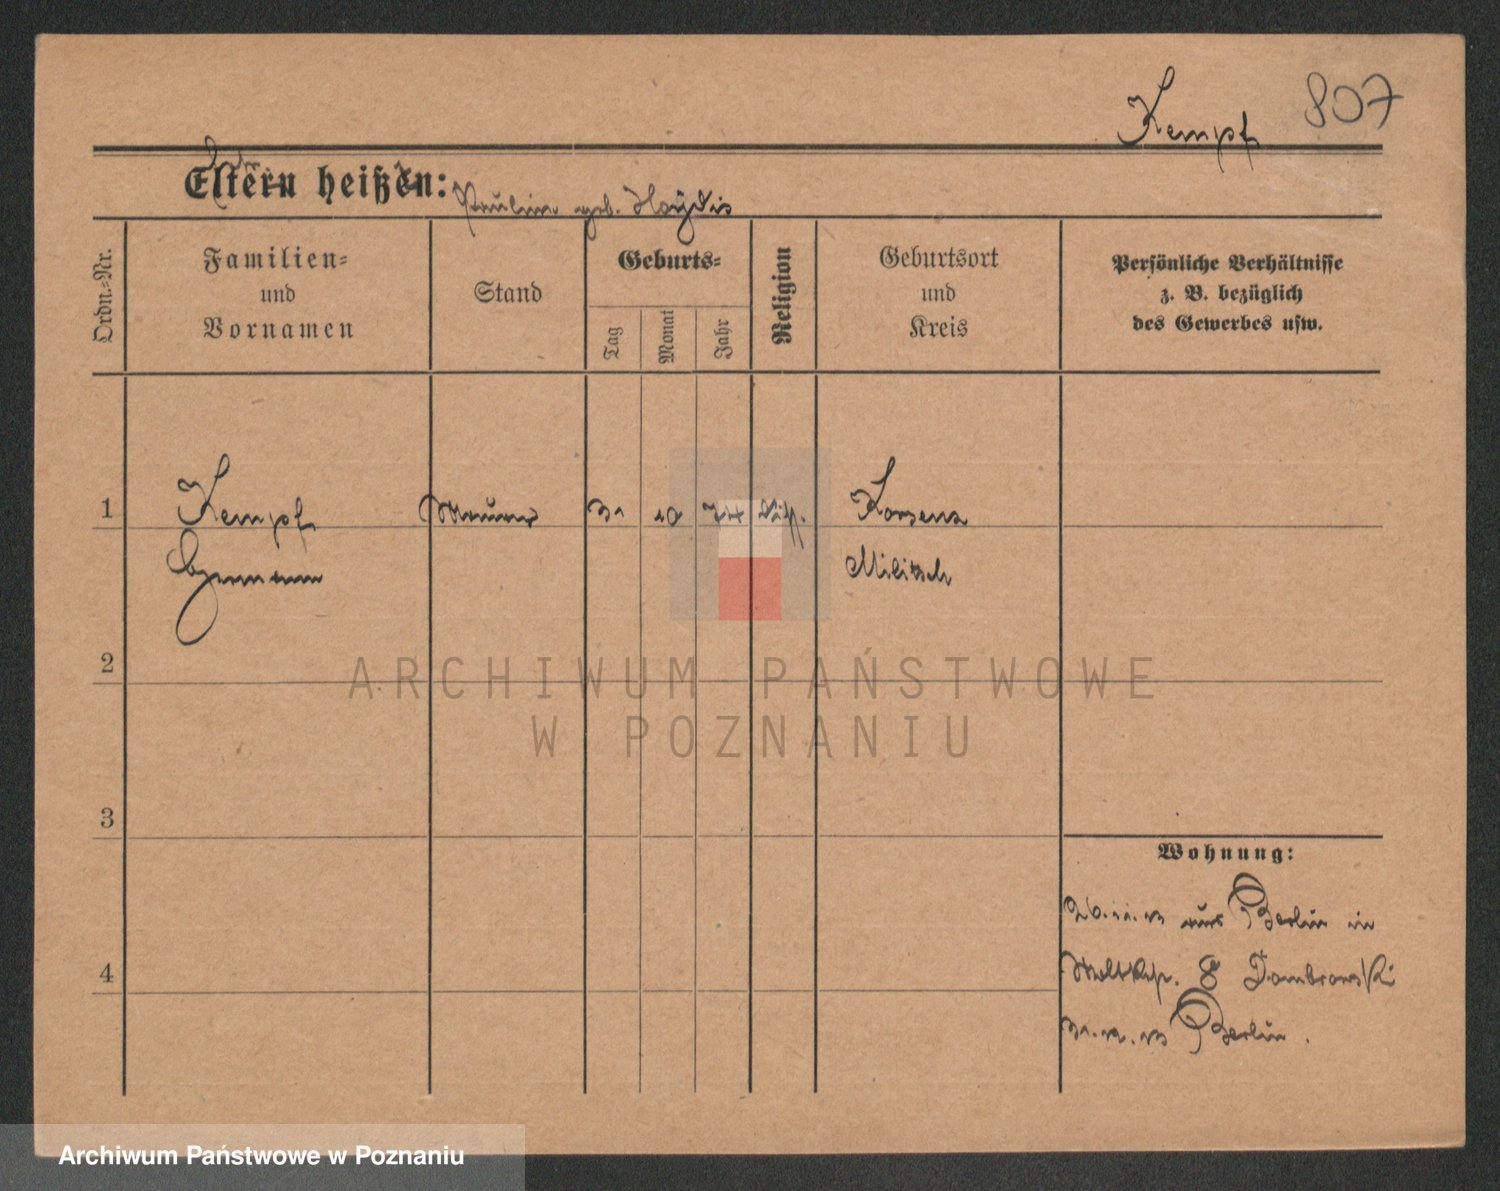 Kempf 807
Eltern heißen:
Paulin geb. Haydis
Ordn.-Nr.
Familien-
und
Vornamen
Stand
Geburts-
Tag
Monat
Jahr
Religion
Geburtsort
und
Kreis
Persönliche Verhältnisse
z. B. bezüglich
des Gewerbes usw.
1 Kempf Maurer 31 10 74 Korsenz
Hermann Militsch
2
3
4
Wohnung:
26.11.13 aus Berlin in
8 Dombrowski
31.12.13 Berlin.
ARCHIWUM PAŃSTWOWE
W POZNANIU
Archiwum Państwowe w Poznaniu